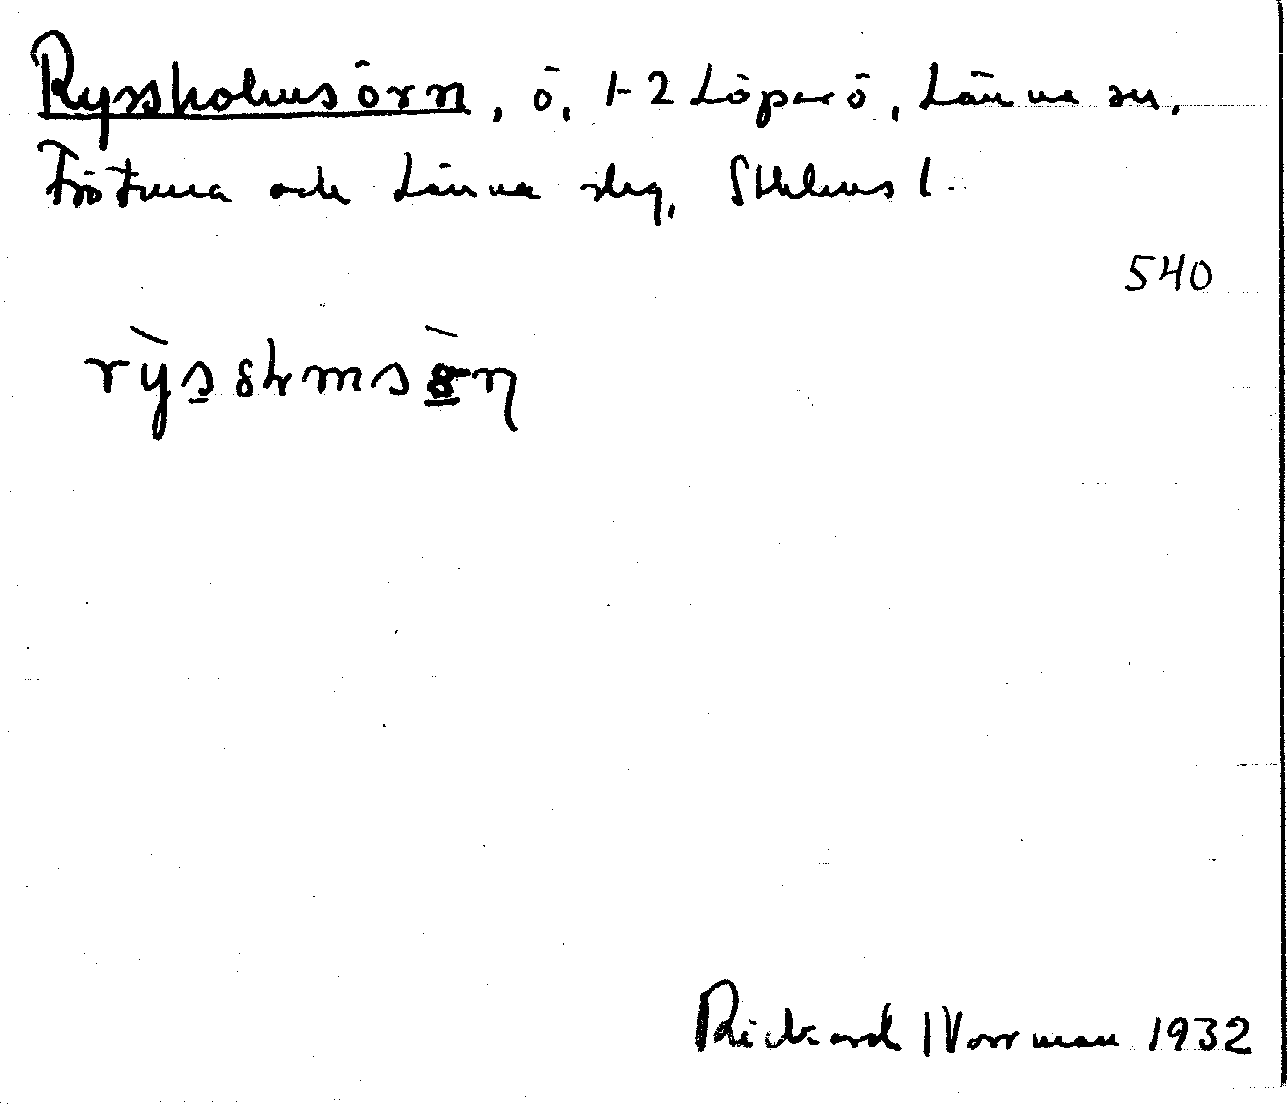 Ryssholmsörn, ö, 1-2 Löparö, Länna sn,
Frötuna och Länna slg, Sthlms l.
540
rỳsshmsö̀n
Rickard Norrman 1932